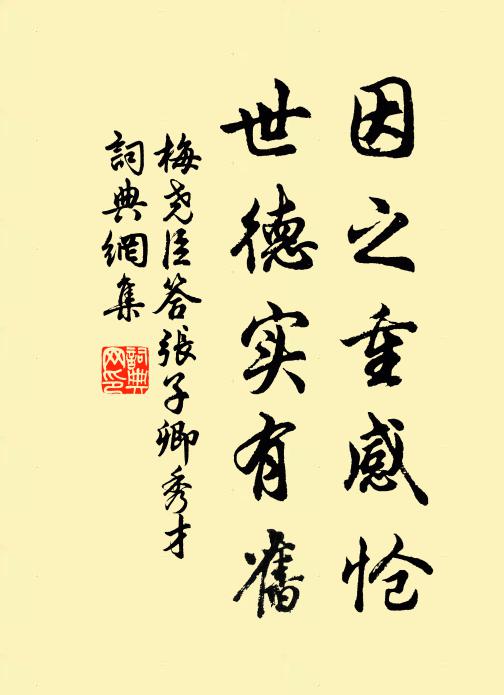 因之重感怆
世德实有舊
梅尧臣答張子卿秀才
詞典網集
詞典网印